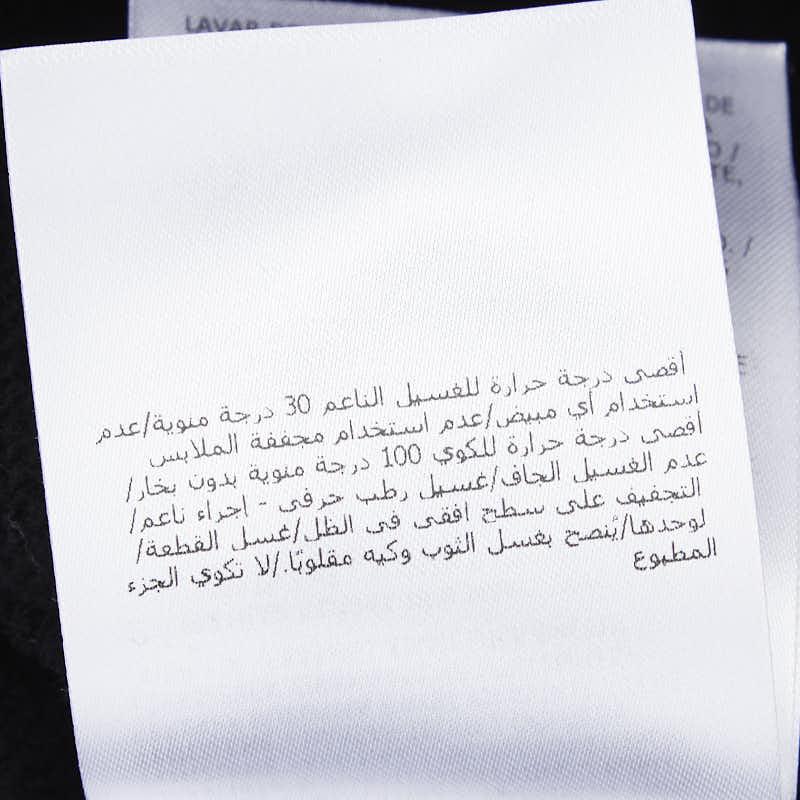 LAVAR
DE
أقصى درجة حرارة للغسيل الناعم 30 درجة منوية/عدم
استخدام أي مبيض/عدم استخدام مجففة الملابس
أقصى درجة حرارة للكوي 100 درجة منوية بدون بخار/
عدم الغسيل الجاف/غسيل رطب حرفى - اجراء ناعم/
التجفيف على سطح افقى فى الظل/غسل القطعة/
لوحدها/يُنصح بغسل الثوب وكيه مقلوبًا./لا تكوي الجزء
المطبوع